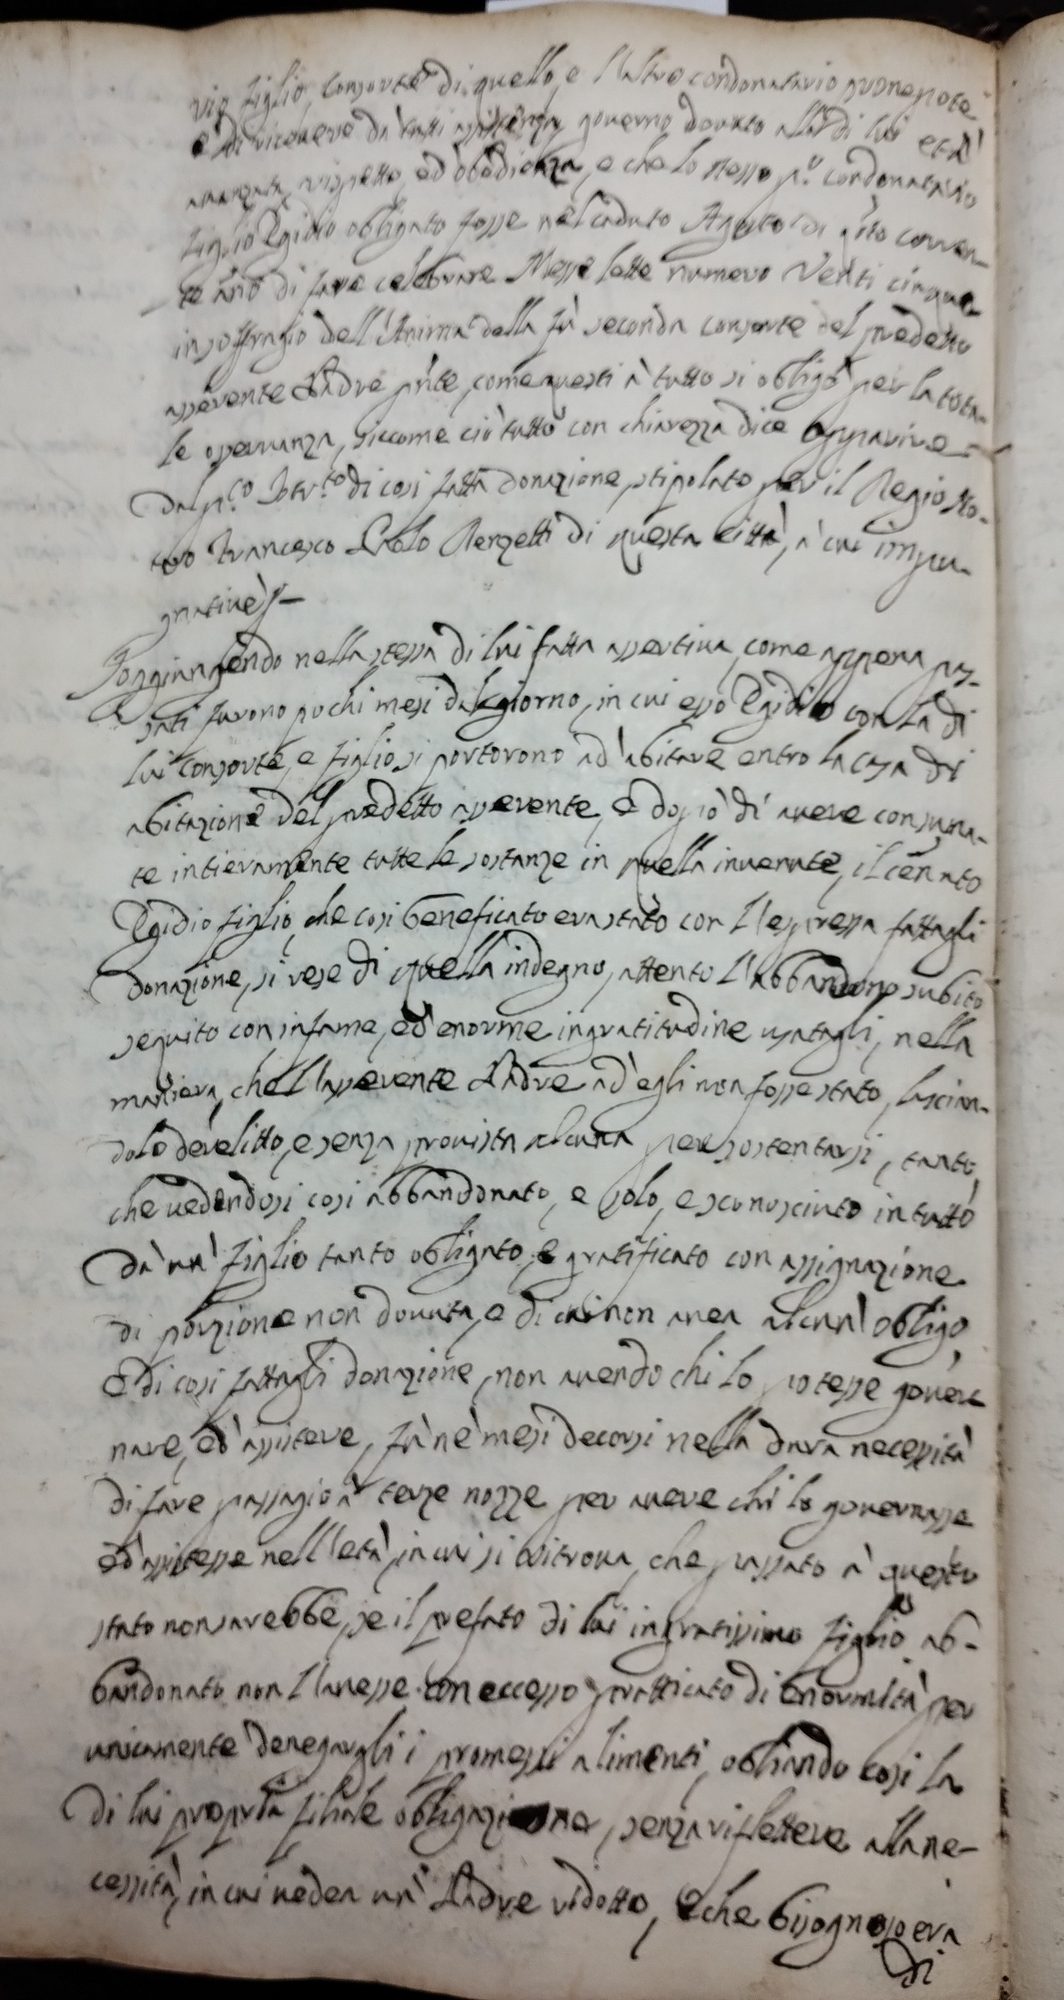 vio figlio, consorte di quello, e l'altro condonatario pronepote
e di ricevere dà tutti assistenza, governo, dovuto alla di lui età
avanzata, rispetto, ed obedienza, e che lo stesso p.º condonatario
figlio Egidio obligato fosse nel caduto Agosto di q'sto corren-
te año di fare celebrare Messe lette numero Venti cinque
in soffragio dell'Anima della fù seconda consorte del predetto
asserente Padre p'nte, come questi à tutto si obligò per la tota-
le osservanza, siccome ciò tutto con chiarezza dice apparire
dal p.co Istr.to di così fatta donazione, stipolato per il Regio No-
taro Francesco Paolo Renzetti di questa città, à cui
Soggiungendo nella stessa di lui fatta assertiva, come appena pas-
sati furono pochi mesi dal giorno, in cui esso Egidio con la di
lui consorte, e figlio si portorono ad abitare entro la casa di
abitazione del predetto asserente, e doppò di avere consuma-
te intieramente tutte le sostanze in quella invenute, il ceñato
Egidio figlio, che così beneficato era stato con l'espressa fattagli
donazione, si rese di quella indegno, attento l'abbandono subito
seguito con infame, ed enorme ingratitudine usatagli, nella
maniera, che l'asserente Padre ad egli non fosse stato, lascian-
dolo derelitto, e senza provista alcuna per sostentarsi, tanto,
che vedendosi così abbandonato, e solo, e sconosciuto in tutto
dà un' figlio tanto obligato, e gratificato con assignazione
di porzione non dovuta, e di cui non avea alcun' obligo,
e di così fattagli donazione, non avendo chi lo potesse gover
nare, ed assistere, fù nè mesi decorsi nella dura necessità
di fare passagio à terze nozze per avere chi lo governasse
ed assistesse nell'età, in cui si ritrova, che passato à questo
stato non sarebbe, se il prefato di lui ingratissimo figlio ab-
bandonato non l'avesse con eccesso pratticato di enormità per
unicamente denegargli i promessi alimenti, obliando così la
di lui propria filiale obligazione, senza riflettere alla ne-
cessità, in cui vedea un' Padre vidotto, e che bisognoso era
di